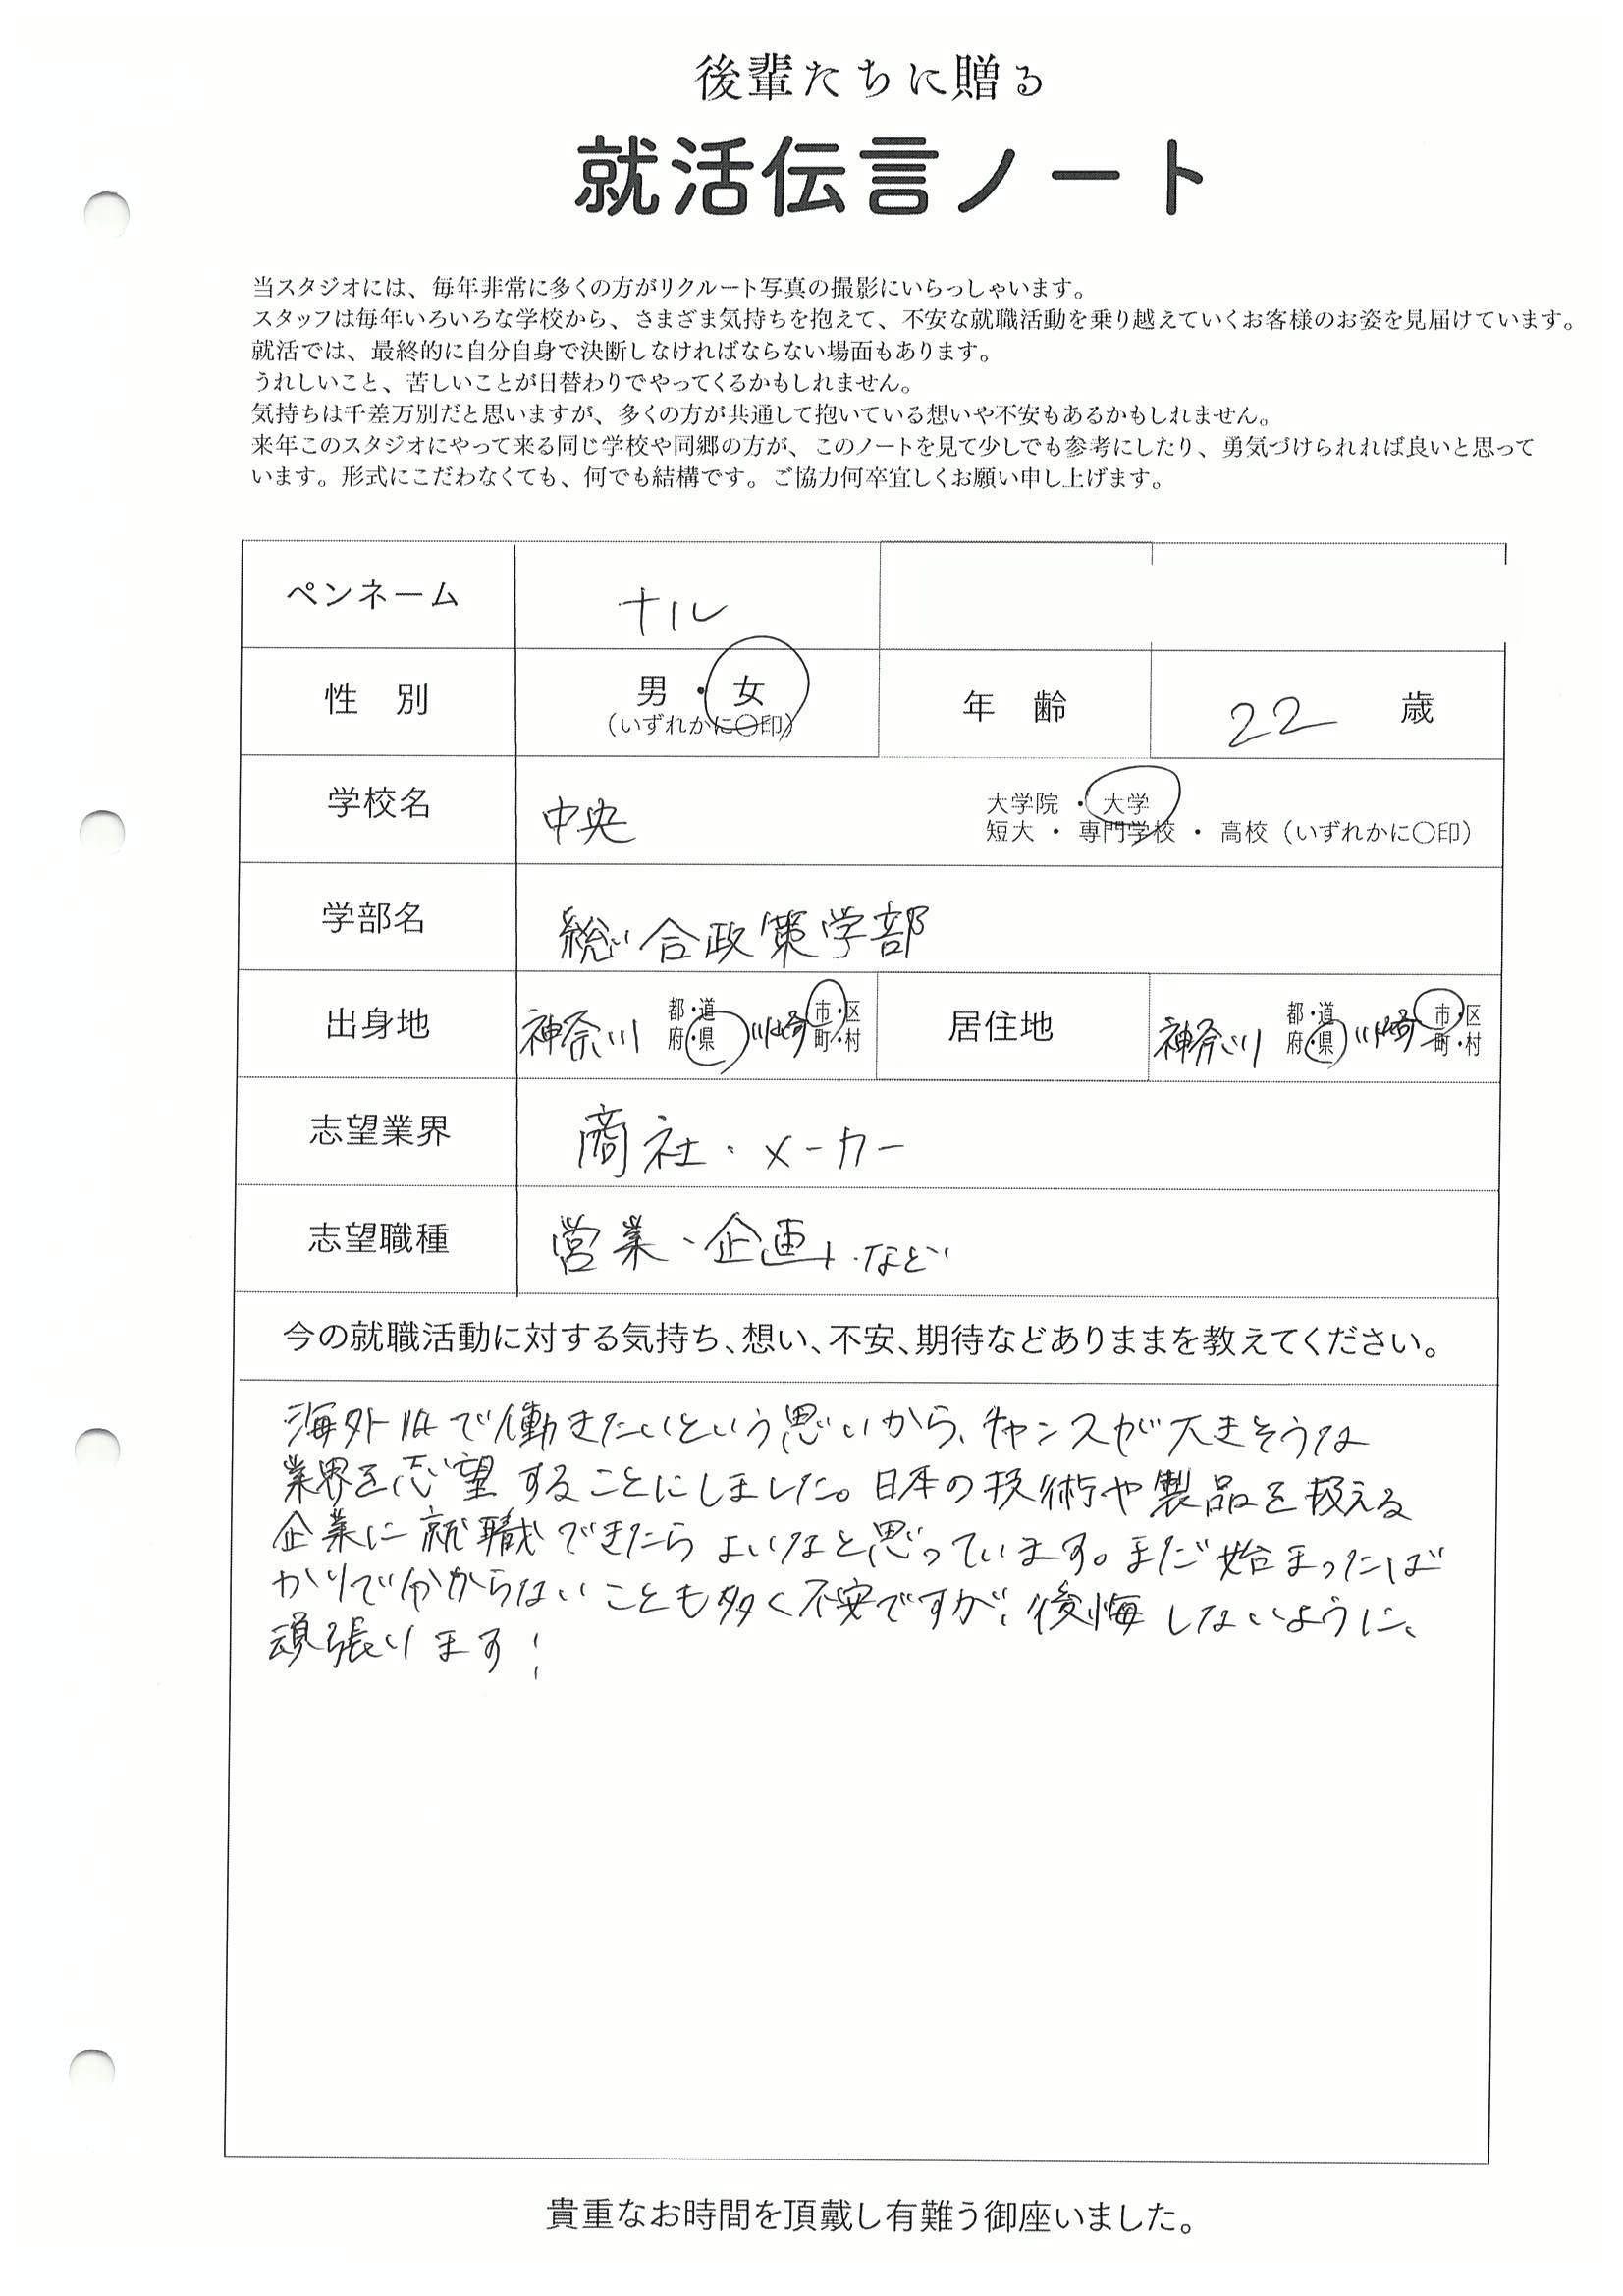 後輩たちに贈る
就活伝言ノート
当スタジオには、毎年非常に多くの方がリクルート写真の撮影にいらっしゃいます。
スタッフは毎年いろいろな学校から、さまざま気持ちを抱えて、不安な就職活動を乗り越えていくお客様のお姿を見届けています。
就活では、最終的に自分自身で決断しなければならない場面もあります。
うれしいこと、苦しいことが日替わりでやってくるかもしれません。
気持ちは千差万別だと思いますが、多くの方が共通して抱いている想いや不安もあるかもしれません。
来年このスタジオにやって来る同じ学校や同郷の方が、このノートを見て少しでも参考にしたり、勇気づけられれば良いと思って
います。形式にこだわなくても、何でも結構です。ご協力何卒宜しくお願い申し上げます。
ペンネーム ナル
性 別 男・女 (いずれかに〇印) 年 齢 22 歳
学校名 中央 大学院・大学
短大・専門学校・高校(いずれかに〇印)
学部名 総合政策学部
出身地 神奈川 都・道 府・県 川崎 市・区 町・村 居住地 神奈川 都・道 府・県 川崎 市・区 町・村
志望業界 商社・メーカー
志望職種 営業・企画 など
今の就職活動に対する気持ち、想い、不安、期待などありままを教えてください。
海外で働きたいという思いから、チャンスが大きそうな
業界を志望することにしました。日本の技術や製品を扱える
企業に就職できたらよいなと思っています。まだ始まったば
かりで分からないことも多く不安ですが、後悔しないように、
頑張ります!
貴重なお時間を頂戴し有難う御座いました。